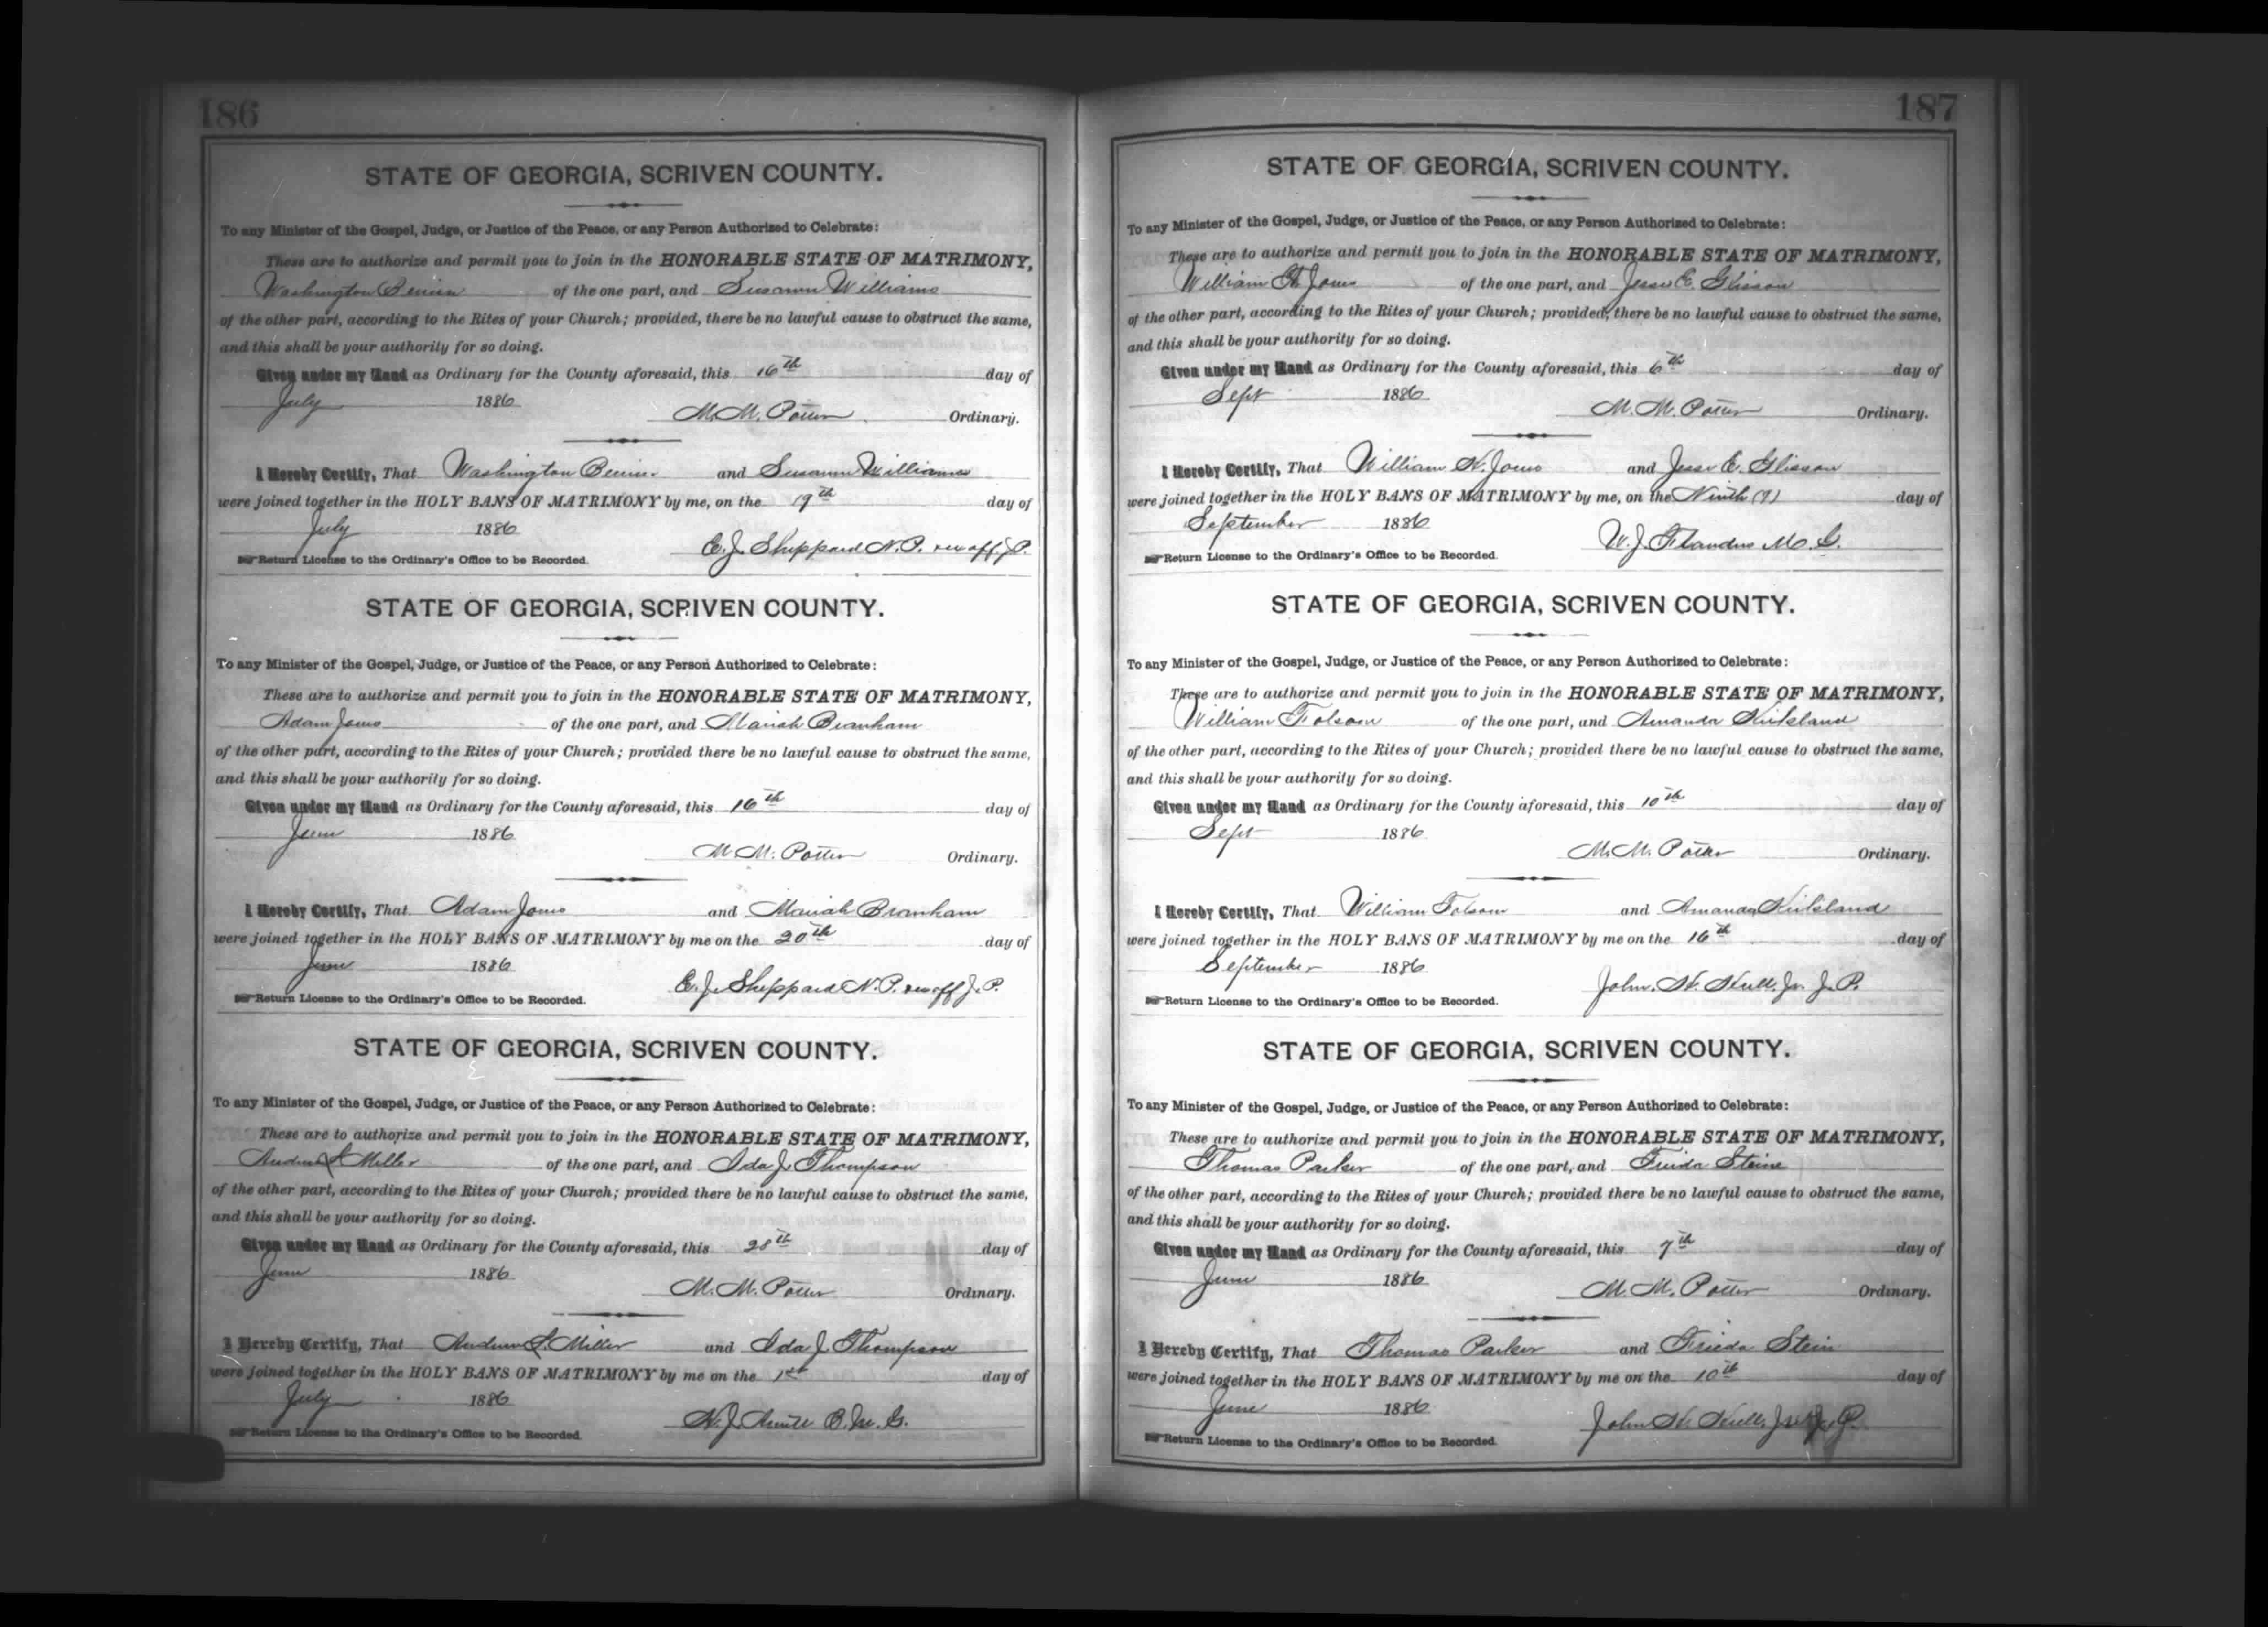 186
STATE OF GEORGIA, SCRIVEN COUNTY.
To any Minister of the Gospel, Judge, or Justice of the Peace, or any Person Authorized to Celebrate:
These are to authorize and permit you to join in the HONORABLE STATE OF MATRIMONY,
Washington of the one part, and Susann Williams
of the other part, according to the Rites of your Church; provided, there be no lawful cause to obstruct the same,
and this shall be your authority for so doing.
Given under my Hand as Ordinary for the County aforesaid, this 16th day of
July 1886 M. M. Potter Ordinary.
I Hereby Certify, That Washington and Susann Williams
were joined together in the HOLY BANS OF MATRIMONY by me, on the 19th day of
July 1886
E. J. Sheppard N. P. exoff. J P.
Return License to the Ordinary's Office to be Recorded.
STATE OF GEORGIA, SCRIVEN COUNTY.
To any Minister of the Gospel, Judge, or Justice of the Peace, or any Person Authorized to Celebrate:
These are to authorize and permit you to join in the HONORABLE STATE OF MATRIMONY,
Adam Jones of the one part, and Mariah Branham
of the other part, according to the Rites of your Church; provided there be no lawful cause to obstruct the same,
and this shall be your authority for so doing.
Given under my Hand as Ordinary for the County aforesaid, this 16th day of
June 1886
M. M. Potter Ordinary.
I Hereby Certify, That Adam Jones and Mariah Branham
were joined together in the HOLY BANS OF MATRIMONY by me on the 20th day of
June 1886
E. J. Sheppard N. P. exoff J. P.
Return License to the Ordinary's Office to be Recorded.
STATE OF GEORGIA, SCRIVEN COUNTY.
To any Minister of the Gospel, Judge, or Justice of the Peace, or any Person Authorized to Celebrate:
These are to authorize and permit you to join in the HONORABLE STATE OF MATRIMONY,
Andrew Miller of the one part, and Ida J Thompson
of the other part, according to the Rites of your Church; provided there be no lawful cause to obstruct the same,
and this shall be your authority for so doing.
Given under my Hand as Ordinary for the County aforesaid, this 28th day of
June 1886
M. M. Potter Ordinary.
I Hereby Certify, That Andrew Miller and Ida J Thompson
were joined together in the HOLY BANS OF MATRIMONY by me on the 1st day of
July 1886
N. J.
Return License to the Ordinary's Office to be Recorded.
187
STATE OF GEORGIA, SCRIVEN COUNTY.
To any Minister of the Gospel, Judge, or Justice of the Peace, or any Person Authorized to Celebrate:
These are to authorize and permit you to join in the HONORABLE STATE OF MATRIMONY,
William H. Jones of the one part, and Jesse E. Glisson
of the other part, according to the Rites of your Church; provided, there be no lawful cause to obstruct the same,
and this shall be your authority for so doing.
Given under my Hand as Ordinary for the County aforesaid, this 6th day of
Sept 1886
M. M. Potter Ordinary.
I Hereby Certify, That William H. Jones and Jesse E. Glisson
were joined together in the HOLY BANS OF MATRIMONY by me, on the Ninth (9) day of
September 1886
W. J. Flanders M. G.
Return License to the Ordinary's Office to be Recorded.
STATE OF GEORGIA, SCRIVEN COUNTY.
To any Minister of the Gospel, Judge, or Justice of the Peace, or any Person Authorized to Celebrate:
These are to authorize and permit you to join in the HONORABLE STATE OF MATRIMONY,
William Folsom of the one part, and Amanda Kirkland
of the other part, according to the Rites of your Church; provided there be no lawful cause to obstruct the same,
and this shall be your authority for so doing.
Given under my Hand as Ordinary for the County aforesaid, this 10th day of
Sept 1886
M. M. Potter Ordinary.
I Hereby Certify, That William Folsom and Amanda Kirkland
were joined together in the HOLY BANS OF MATRIMONY by me on the 16th day of
September 1886
John. H. Hull. Jr. J. P.
Return License to the Ordinary's Office to be Recorded.
STATE OF GEORGIA, SCRIVEN COUNTY.
To any Minister of the Gospel, Judge, or Justice of the Peace, or any Person Authorized to Celebrate:
These are to authorize and permit you to join in the HONORABLE STATE OF MATRIMONY,
Thomas Parker of the one part, and Frieda Steine
of the other part, according to the Rites of your Church; provided there be no lawful cause to obstruct the same,
and this shall be your authority for so doing.
Given under my Hand as Ordinary for the County aforesaid, this 7th day of
June 1886
M. M. Potter Ordinary.
I Hereby Certify, That Thomas Parker and Frieda Stein
were joined together in the HOLY BANS OF MATRIMONY by me on the 10th day of
June 1886
John H. Hull. Jr J. P.
Return License to the Ordinary's Office to be Recorded.